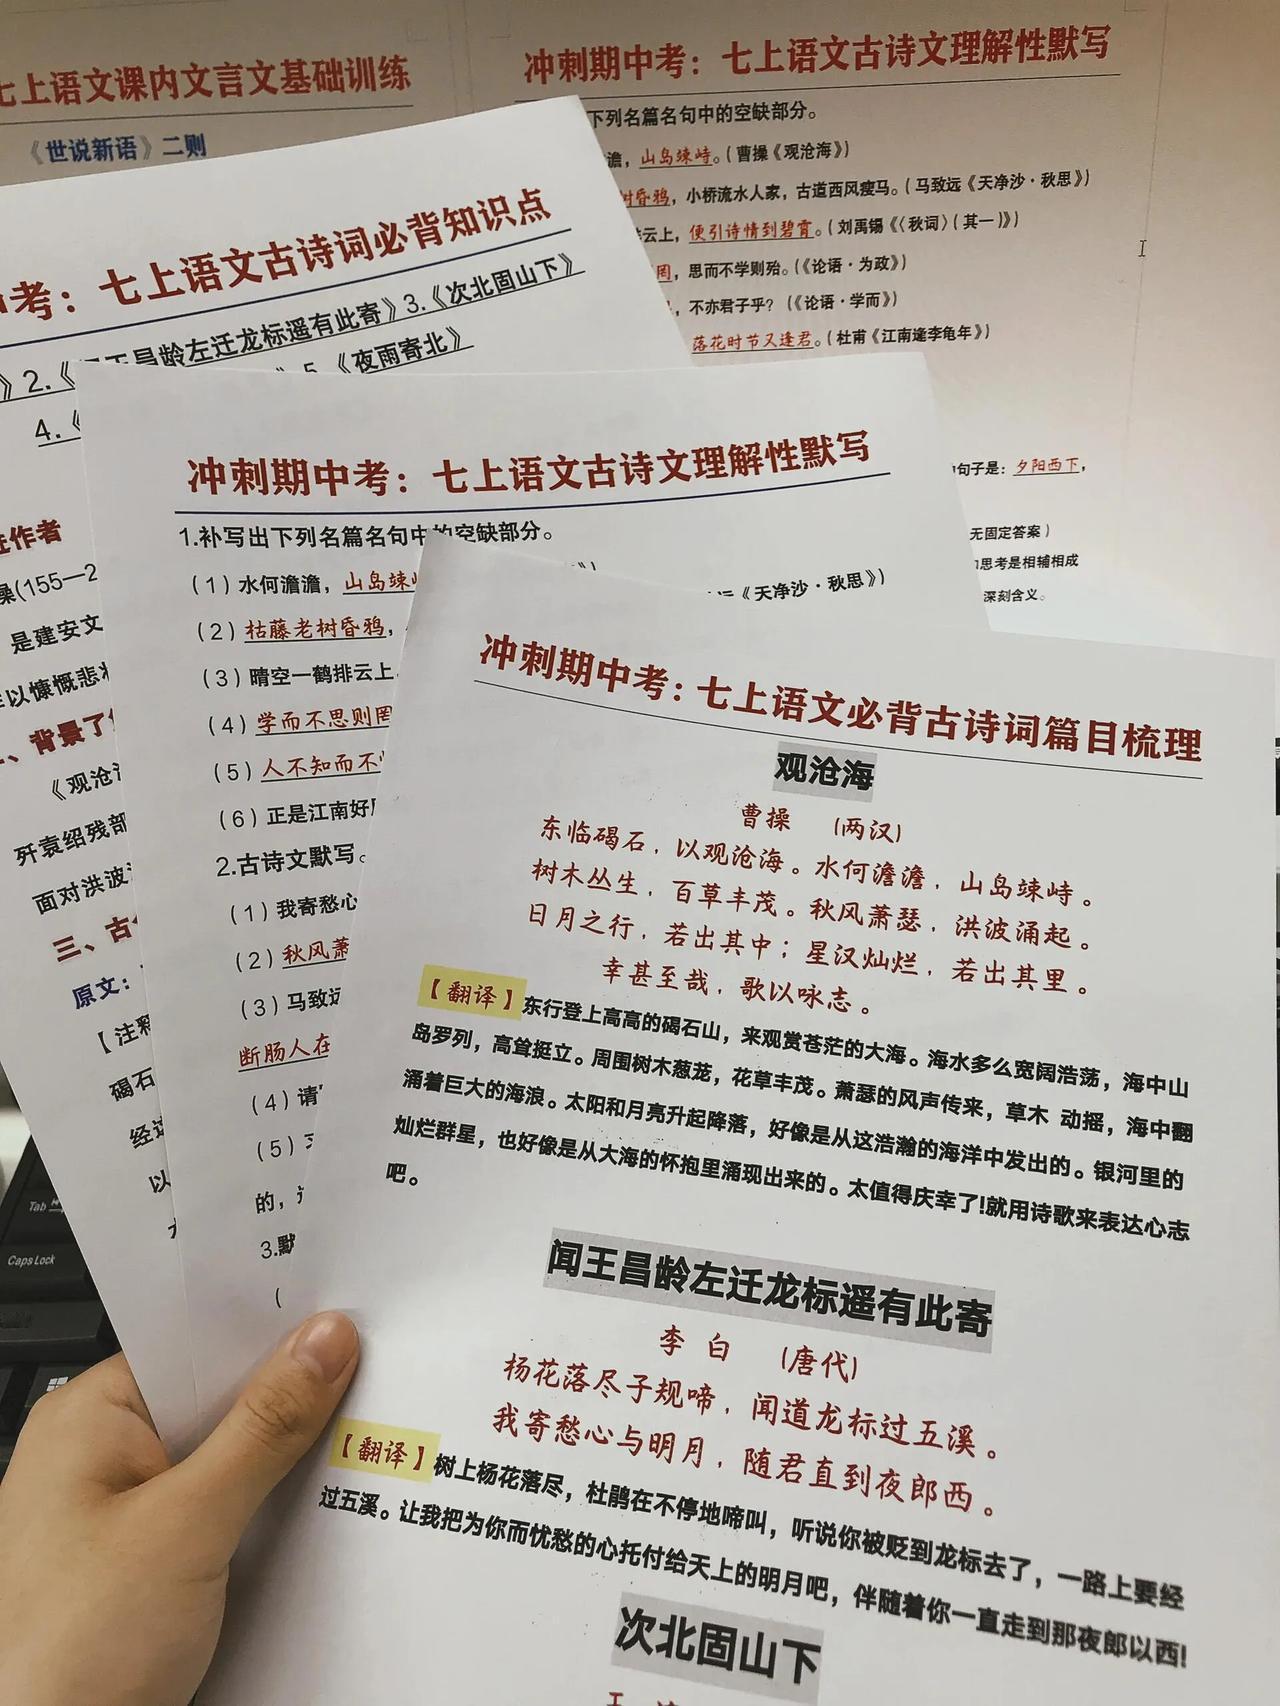 七上语文课内文言文基础训练
《世说新语》二则
冲刺期中考：七上语文古诗文理解性默写
下列名篇名句中的空缺部分。
澹，山岛竦峙。（曹操《观沧海》）
树昏鸦，小桥流水人家，古道西风瘦马。（马致远《天净沙·秋思》）
云上，便引诗情到碧霄。（刘禹锡《〈秋词〉（其一）》）
罔，思而不学则殆。（《论语·为政》）
，不亦君子乎？（《论语·学而》）
落花时节又逢君。（杜甫《江南逢李龟年》）
句子是：夕阳西下，
无固定答案）
思考是相辅相成
深刻含义。
中考：七上语文古诗词必背知识点
》2.《闻王昌龄左迁龙标遥有此寄》3.《次北固山下》
4.《
5.《夜雨寄北》
作者
操(155—2
是建安文
以慷慨悲
、背景了
《观沧
歼袁绍残部
面对洪波
三、古
原文：
【注释
碣石
经过
以
冲刺期中考：七上语文古诗文理解性默写
1.补写出下列名篇名句中的空缺部分。
（1）水何澹澹，山岛竦峙
（2）枯藤老树昏鸦，
《天净沙·秋思》）
（3）晴空一鹤排云上，
（4）学而不思则罔
（5）人不知而不
（6）正是江南好
2.古诗文默写。
（1）我寄愁心
（2）秋风萧
（3）马致远
断肠人在
（4）请
（5）
的，
3.默
（
冲刺期中考：七上语文必背古诗词篇目梳理
观沧海
曹操 （两汉）
东临碣石，以观沧海。水何澹澹，山岛竦峙。
树木丛生，百草丰茂。秋风萧瑟，洪波涌起。
日月之行，若出其中；星汉灿烂，若出其里。
幸甚至哉，歌以咏志。
【翻译】东行登上高高的碣石山，来观赏苍茫的大海。海水多么宽阔浩荡，海中山
岛罗列，高耸挺立。周围树木葱茏，花草丰茂。萧瑟的风声传来，草木 动摇，海中翻
涌着巨大的海浪。太阳和月亮升起降落，好像是从这浩瀚的海洋中发出的。银河里的
灿烂群星，也好像是从大海的怀抱里涌现出来的。太值得庆幸了!就用诗歌来表达心志
吧。
闻王昌龄左迁龙标遥有此寄
李 白 （唐代）
杨花落尽子规啼，闻道龙标过五溪。
我寄愁心与明月，随君直到夜郎西。
【翻译】树上杨花落尽，杜鹃在不停地啼叫，听说你被贬到龙标去了，一路上要经
过五溪。让我把为你而忧愁的心托付给天上的明月吧，伴随着你一直走到那夜郎以西!
次北固山下
Tab
Caps Lock